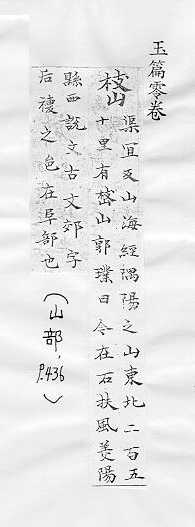 玉篇零卷
渠宜反山海經隅陽之山東北二百五
十里有山郭璞曰今在石扶風羙陽
縣西說文古文郊字
后禝之邑在阜部也
(山部,
p.436)